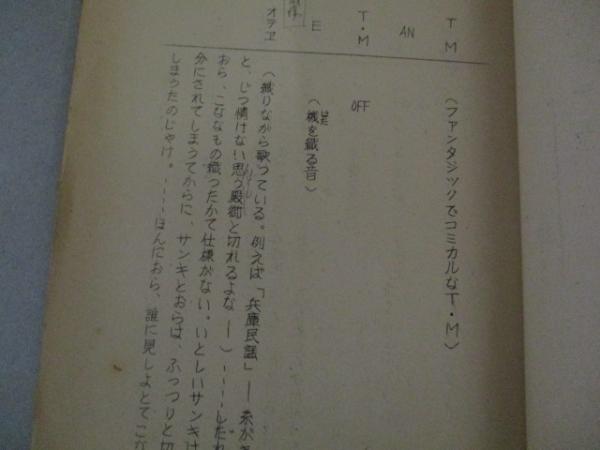 T M
(ファンタジックでコミカルなT・M)
AN
T・M
OFF
(機を織る音)
はた
E
オヲヱ
(織りながら歌っている。例えば「兵庫民謡」― 糸が
と、じつ情けない思う殿御と切れるよな ―)
おら、こななもの織ったかて仕様がない。いとしいサンキは
分にされてしまうてからに、サンキとおらは、ふっつりと切
しまったのじゃけ。‥‥ほんにおら、誰に見しょとてこな